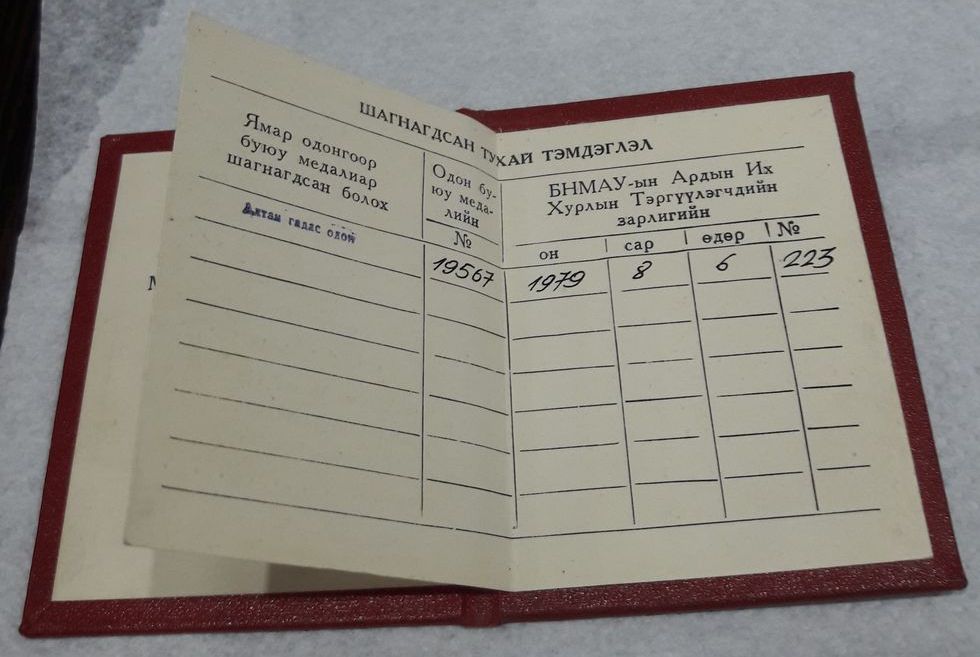 ШАГНАГДСАН ТУХАЙ ТЭМДЭГЛЭЛ
Ямар одонгоор
буюу медалиар
шагнагдсан болох
Одон бу-
юу меда-
лийн
№
БНМАУ-ын Ардын Их
Хурлын Тэргүүлэгчдийн
зарлигийн
он сар өдөр №
Алтан гадас одон
19567 1979 8 6 223